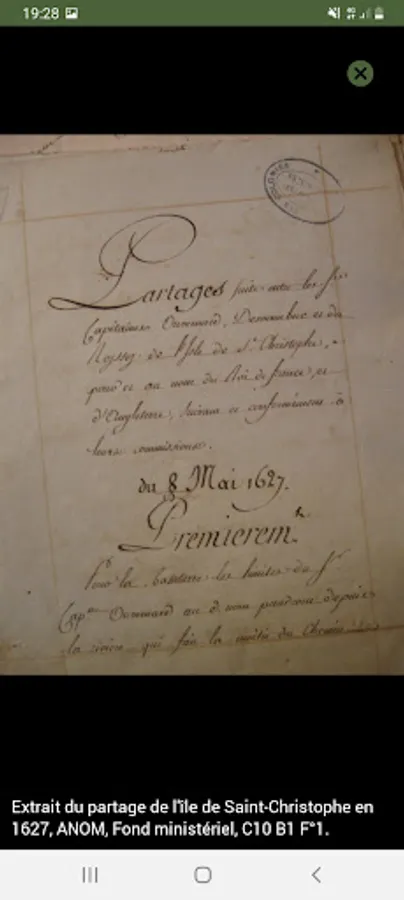 19:28
COLONIES
Partages faits entre les Srs
Capitaines Ouernard, Desnambuc et du
Rossey de l'Isle de St Christophe,
pour et au nom du Roi de france, et
d'Angleterre, suivant et conformément à
leurs commissions.
du 8 Mai 1627.
Premieremt
Pr la Basseterre les limites du Sr
Capne Ouernard au d. nom prendront depuis
la rivière qui fait la moitié du Chemin
Extrait du partage de l'île de Saint-Christophe en
1627, ANOM, Fond ministériel, C10 B1 F°1.